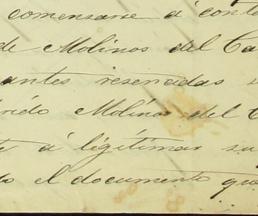 comensarse á conta
de Molinos del Ca
antes reseñadas s
rido Molinos del C
te á légitimar su
o el documento que